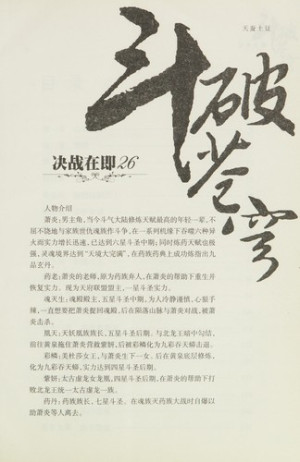 天蚕土豆
斗破苍穹
决战在即26
人物介绍
萧炎:男主角,当今斗气大陆修炼天赋最高的年轻一辈,不
屈不挠地与家族曾仇魂族作斗争,在一系列机缘下吞噬六种异
火而实力增长迅速,已达到六星斗圣中期;同时炼药天赋也极
强,灵魂境界达到“天境大完满”,在药族药典上成功炼指出九
品玄丹。
药老:萧炎的老师,原为药族弃人,在萧炎的帮助下重生并
恢复实力。现为天府联盟盟主,一星斗圣实力。
魂天生:魂殿殿主,五星斗圣中期,为人冷静谨慎,心狠手
辣,一直想要把萧炎捉到魂殿,后在陨落山脉与萧炎对战,被萧
炎击杀。
凰天:天妖凰族族长,五星斗圣后期。与北龙王暗中勾结,
前往黄泉拖住萧炎营救紫妍,后被彩鳞化为九彩吞天蟒击退。
彩鳞:美杜莎女王,与萧炎生下一女。后在黄泉底层修炼,
化为九彩吞天蟒,实力达到四星斗圣后期。
紫妍:太古虚龙女龙凰,四星斗圣后期,在萧炎的帮助下打
败北龙王统一太古虚龙一族。
药丹:药族族长,七星斗圣。在魂族灭药族大战时自爆以
助萧炎等人离去。